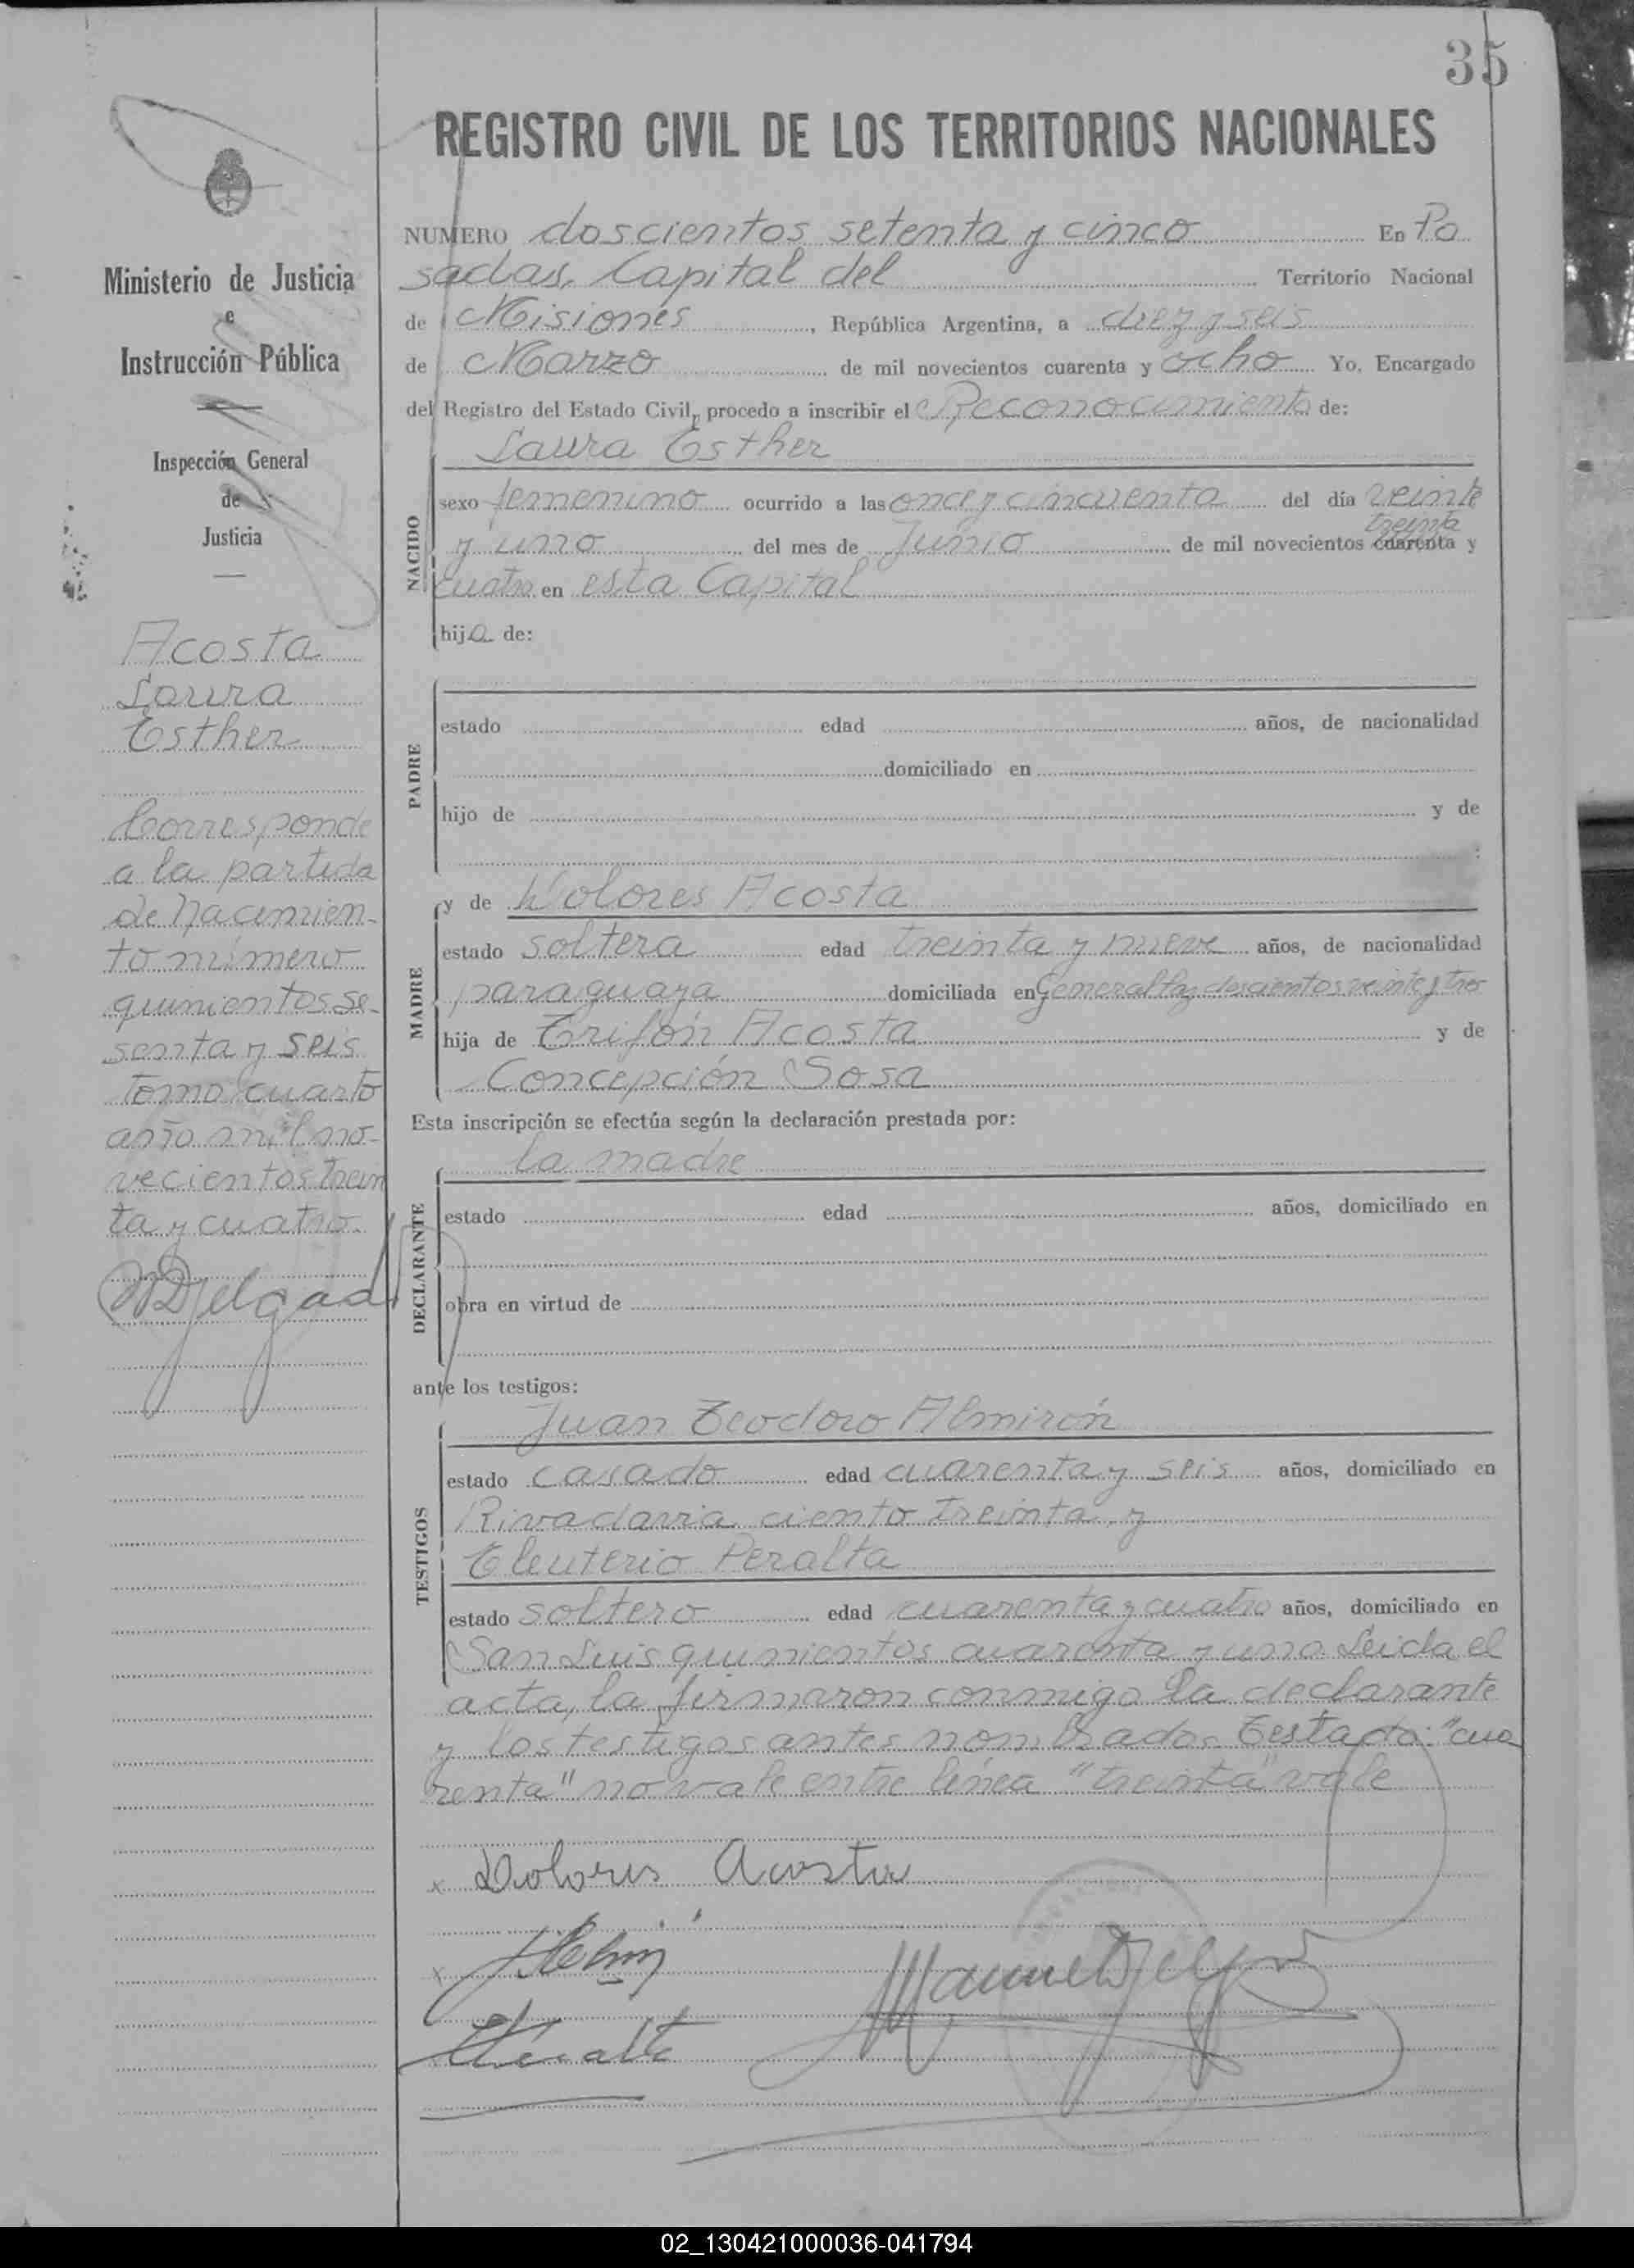 35
REGISTRO CIVIL DE LOS TERRITORIOS NACIONALES
Ministerio de Justicia
e
Instrucción Pública
Inspección General
de
Justicia
Acosta
Laura
Esther
Corresponde
a la partida
de Nacimien-
to número
quinientos se-
senta y seis
tomo cuarto
año mil no-
vecientos trein
ta y cuatro.
NUMERO doscientos setenta y cinco En Po
sadas, Capital del Territorio Nacional
de Misiones, República Argentina, a diez y seis
de Marzo de mil novecientos cuarenta y ocho Yo, Encargado
del Registro del Estado Civil, procedo a inscribir el Reconocimiento de:
Laura Esther
NACIDO
sexo femenino ocurrido a las once y cincuenta del día veinte
treinta
y uno del mes de Junio de mil novecientos cuarenta y
cuatro en esta Capital
hija de:
PADRE
estado edad años, de nacionalidad
domiciliado en
hijo de y de
y de Dolores Acosta
MADRE
estado soltera edad treinta y nueve años, de nacionalidad
paraguaya domiciliada en General Paz doscientos veinte y tres
hija de Trifón Acosta y de
Concepción Sosa
Esta inscripción se efectúa según la declaración prestada por:
la madre
DECLARANTE
estado edad años, domiciliado en
obra en virtud de
ante los testigos:
Juan Teodoro Almirón
TESTIGOS
estado casado edad cuarenta y seis años, domiciliado en
Rivadavia ciento treinta, y
Eleuterio Peralta
estado soltero edad cuarenta y cuatro años, domiciliado en
San Luis quinientos cuarenta y uno. Leida el
acta, la firmaron conmigo la declarante
y los testigos antes nombrados. Testado: "cua
renta" no vale entre línea "treinta" vale
x Dolores Acosta
x
02_130421000036-041794